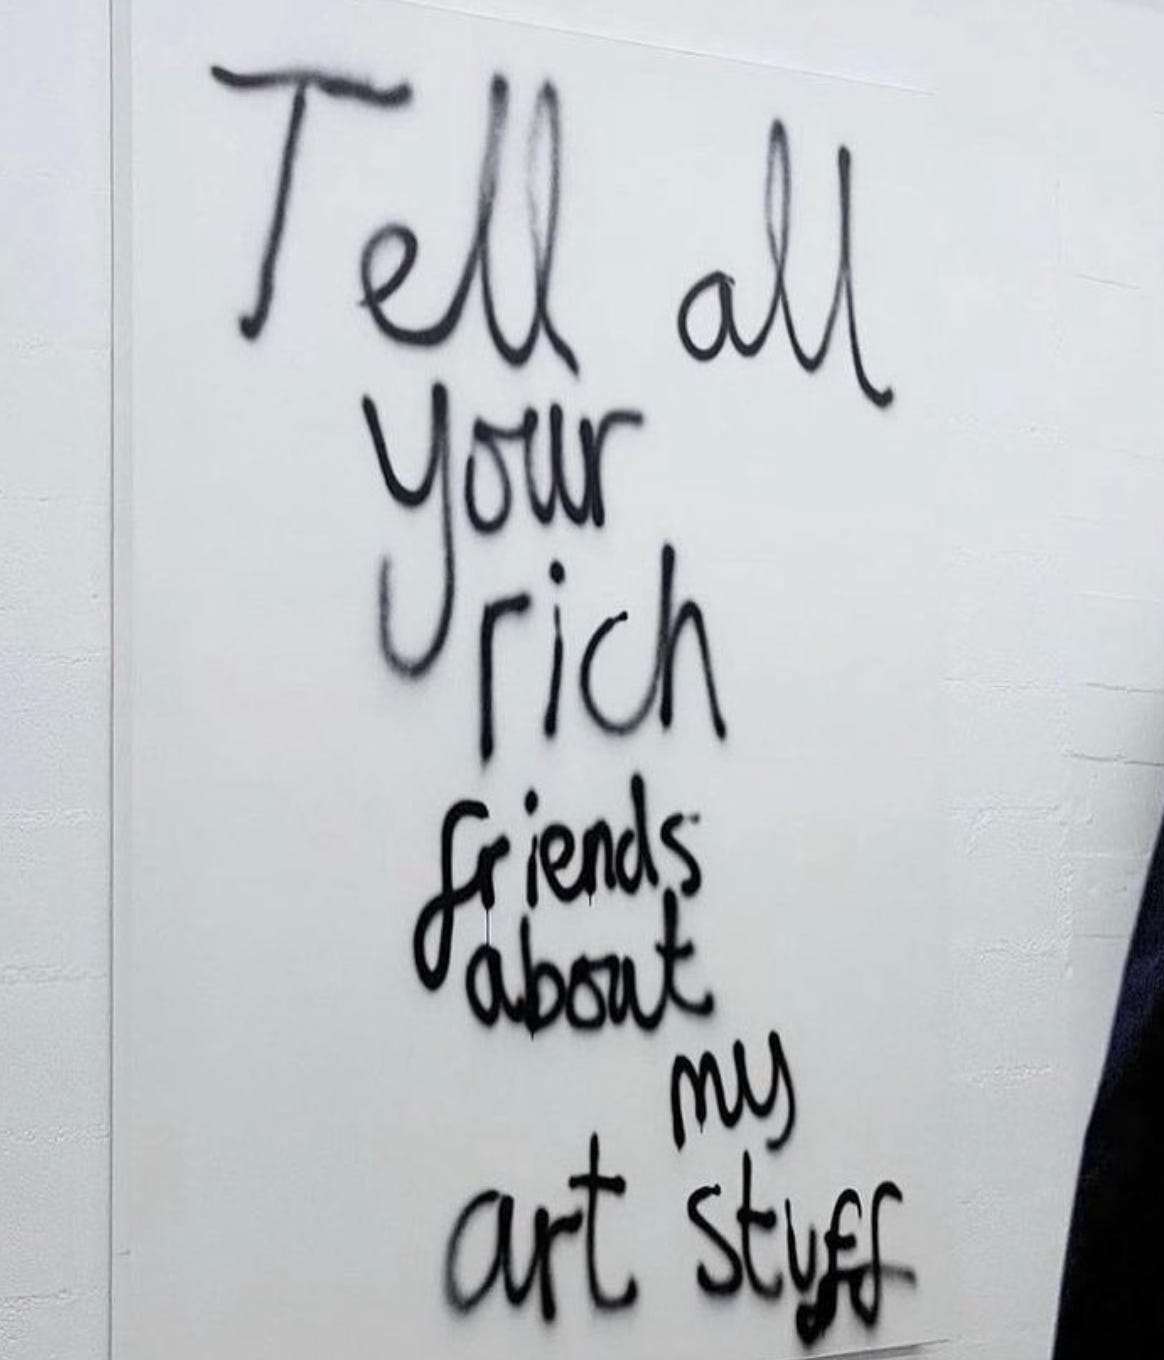 Tell all
your
rich
friends
about
my
art stuff